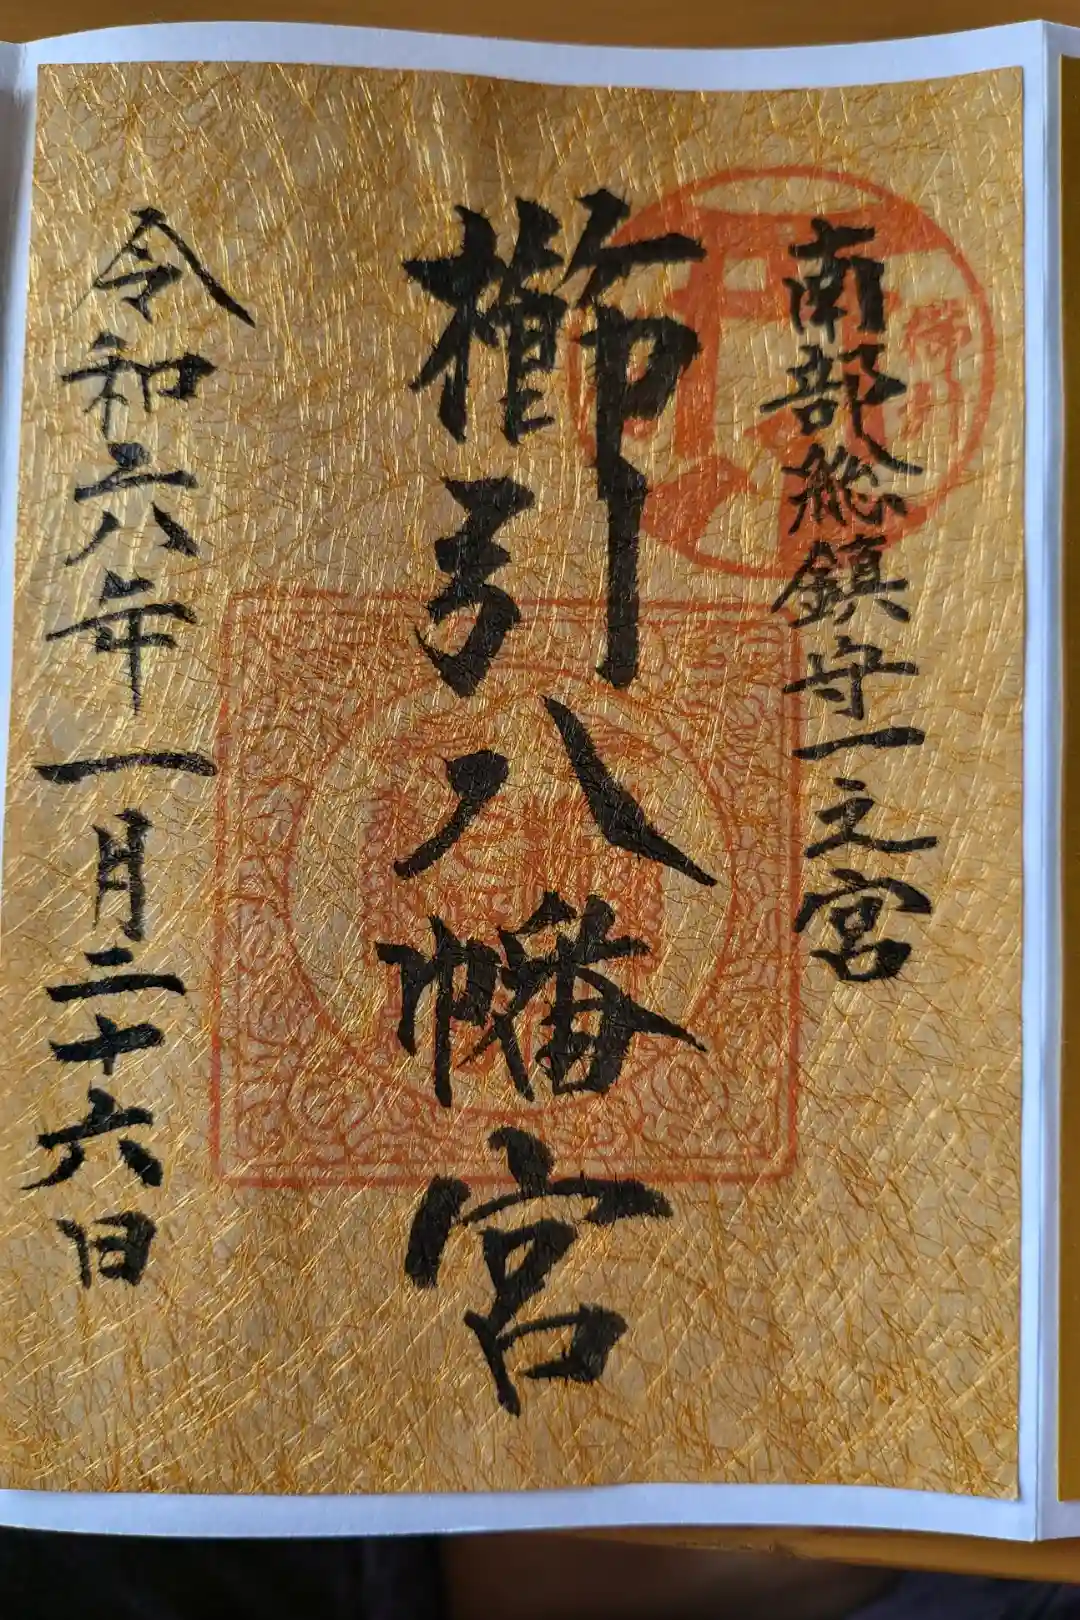 南部総鎮守一之宮
櫛引八幡宮
令和六八年一月二十六日